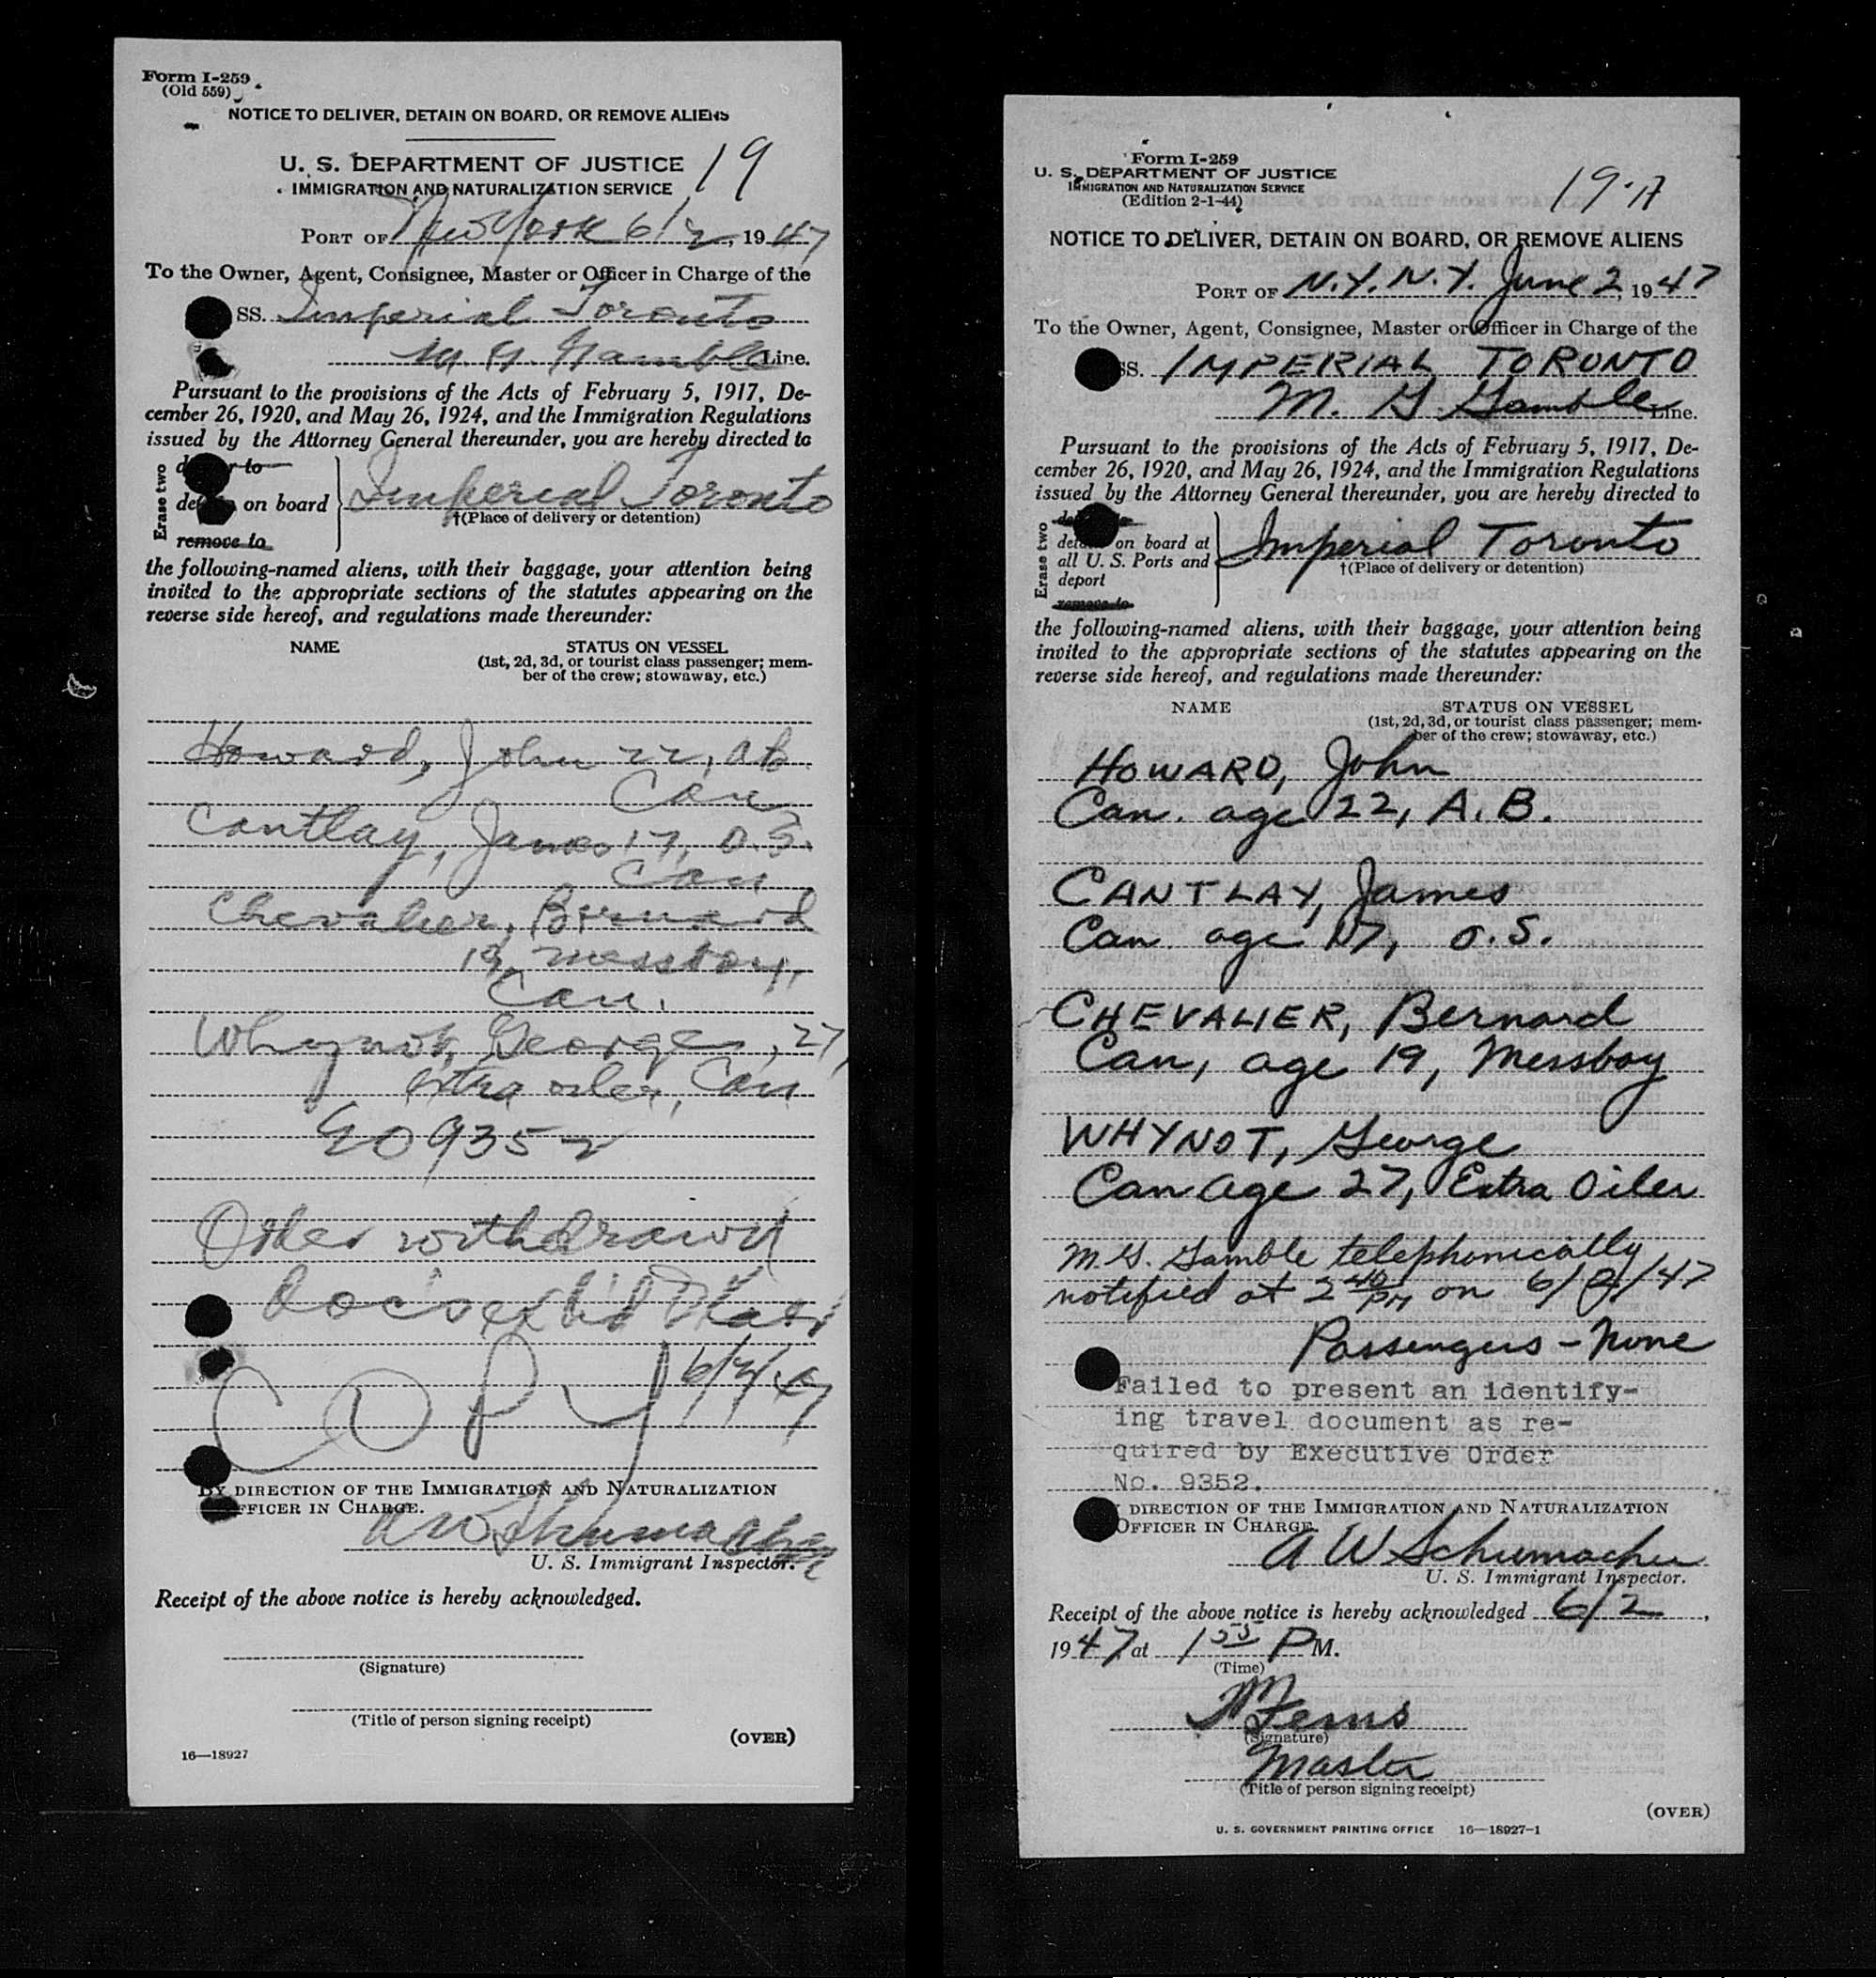 Form I-259
(Old 559)
NOTICE TO DELIVER, DETAIN ON BOARD, OR REMOVE ALIENS
U. S. DEPARTMENT OF JUSTICE
19
IMMIGRATION AND NATURALIZATION SERVICE
PORT OF New York 6/2, 1947
To the Owner, Agent, Consignee, Master or Officer in Charge of the
SS. Imperial Toronto
M. G. Gamble Line.
Pursuant to the provisions of the Acts of February 5, 1917, De-
cember 26, 1920, and May 26, 1924, and the Immigration Regulations
issued by the Attorney General thereunder, you are hereby directed to
Erase two
on board
remove to
Imperial Toronto
†(Place of delivery or detention)
the following-named aliens, with their baggage, your attention being
invited to the appropriate sections of the statutes appearing on the
reverse side hereof, and regulations made thereunder:
NAME STATUS ON VESSEL
(1st, 2d, 3d, or tourist class passenger; mem-
ber of the crew; stowaway, etc.)
Howard, John 22, ab.
Can
Cantlay, James 17, O.S.
Can
Chevalier, Bernard
19, messboy,
Can.
Whynot, George, 27,
extra oiler, Can
EO 9352
Order withdrawn
6/3/47
COPY
BY DIRECTION OF THE IMMIGRATION AND NATURALIZATION
OFFICER IN CHARGE.
A W Schumacher
U. S. Immigrant Inspector.
Receipt of the above notice is hereby acknowledged.
(Signature)
(Title of person signing receipt)
(OVER)
16—18927
Form I-259
U. S. DEPARTMENT OF JUSTICE
IMMIGRATION AND NATURALIZATION SERVICE
(Edition 2-1-44)
19-A
NOTICE TO DELIVER, DETAIN ON BOARD, OR REMOVE ALIENS
PORT OF N.Y. N.Y. June 2, 1947
To the Owner, Agent, Consignee, Master or Officer in Charge of the
SS. IMPERIAL TORONTO
M. G. Gamble Line.
Pursuant to the provisions of the Acts of February 5, 1917, De-
cember 26, 1920, and May 26, 1924, and the Immigration Regulations
issued by the Attorney General thereunder, you are hereby directed to
Erase two
on board at
all U. S. Ports and
deport
remove to
Imperial Toronto
†(Place of delivery or detention)
the following-named aliens, with their baggage, your attention being
invited to the appropriate sections of the statutes appearing on the
reverse side hereof, and regulations made thereunder:
NAME STATUS ON VESSEL
(1st, 2d, 3d, or tourist class passenger; mem-
ber of the crew; stowaway, etc.)
HOWARD, John
Can. age 22, A.B.
CANTLAY, James
Can. age 17, O.S.
CHEVALIER, Bernard
Can, age 19, Messboy
WHYNOT, George
Can age 27, Extra Oiler
M. G. Gamble telephonically
notified at 2 40 PM on 6/2/47
Passengers - None
Failed to present an identify-
ing travel document as re-
quired by Executive Order
No. 9352.
DIRECTION OF THE IMMIGRATION AND NATURALIZATION
OFFICER IN CHARGE.
A W Schumacher
U. S. Immigrant Inspector.
Receipt of the above notice is hereby acknowledged 6/2,
1947 at 1 55 PM.
(Time)
(Signature)
Master
(Title of person signing receipt)
(OVER)
U. S. GOVERNMENT PRINTING OFFICE 16—18927-1